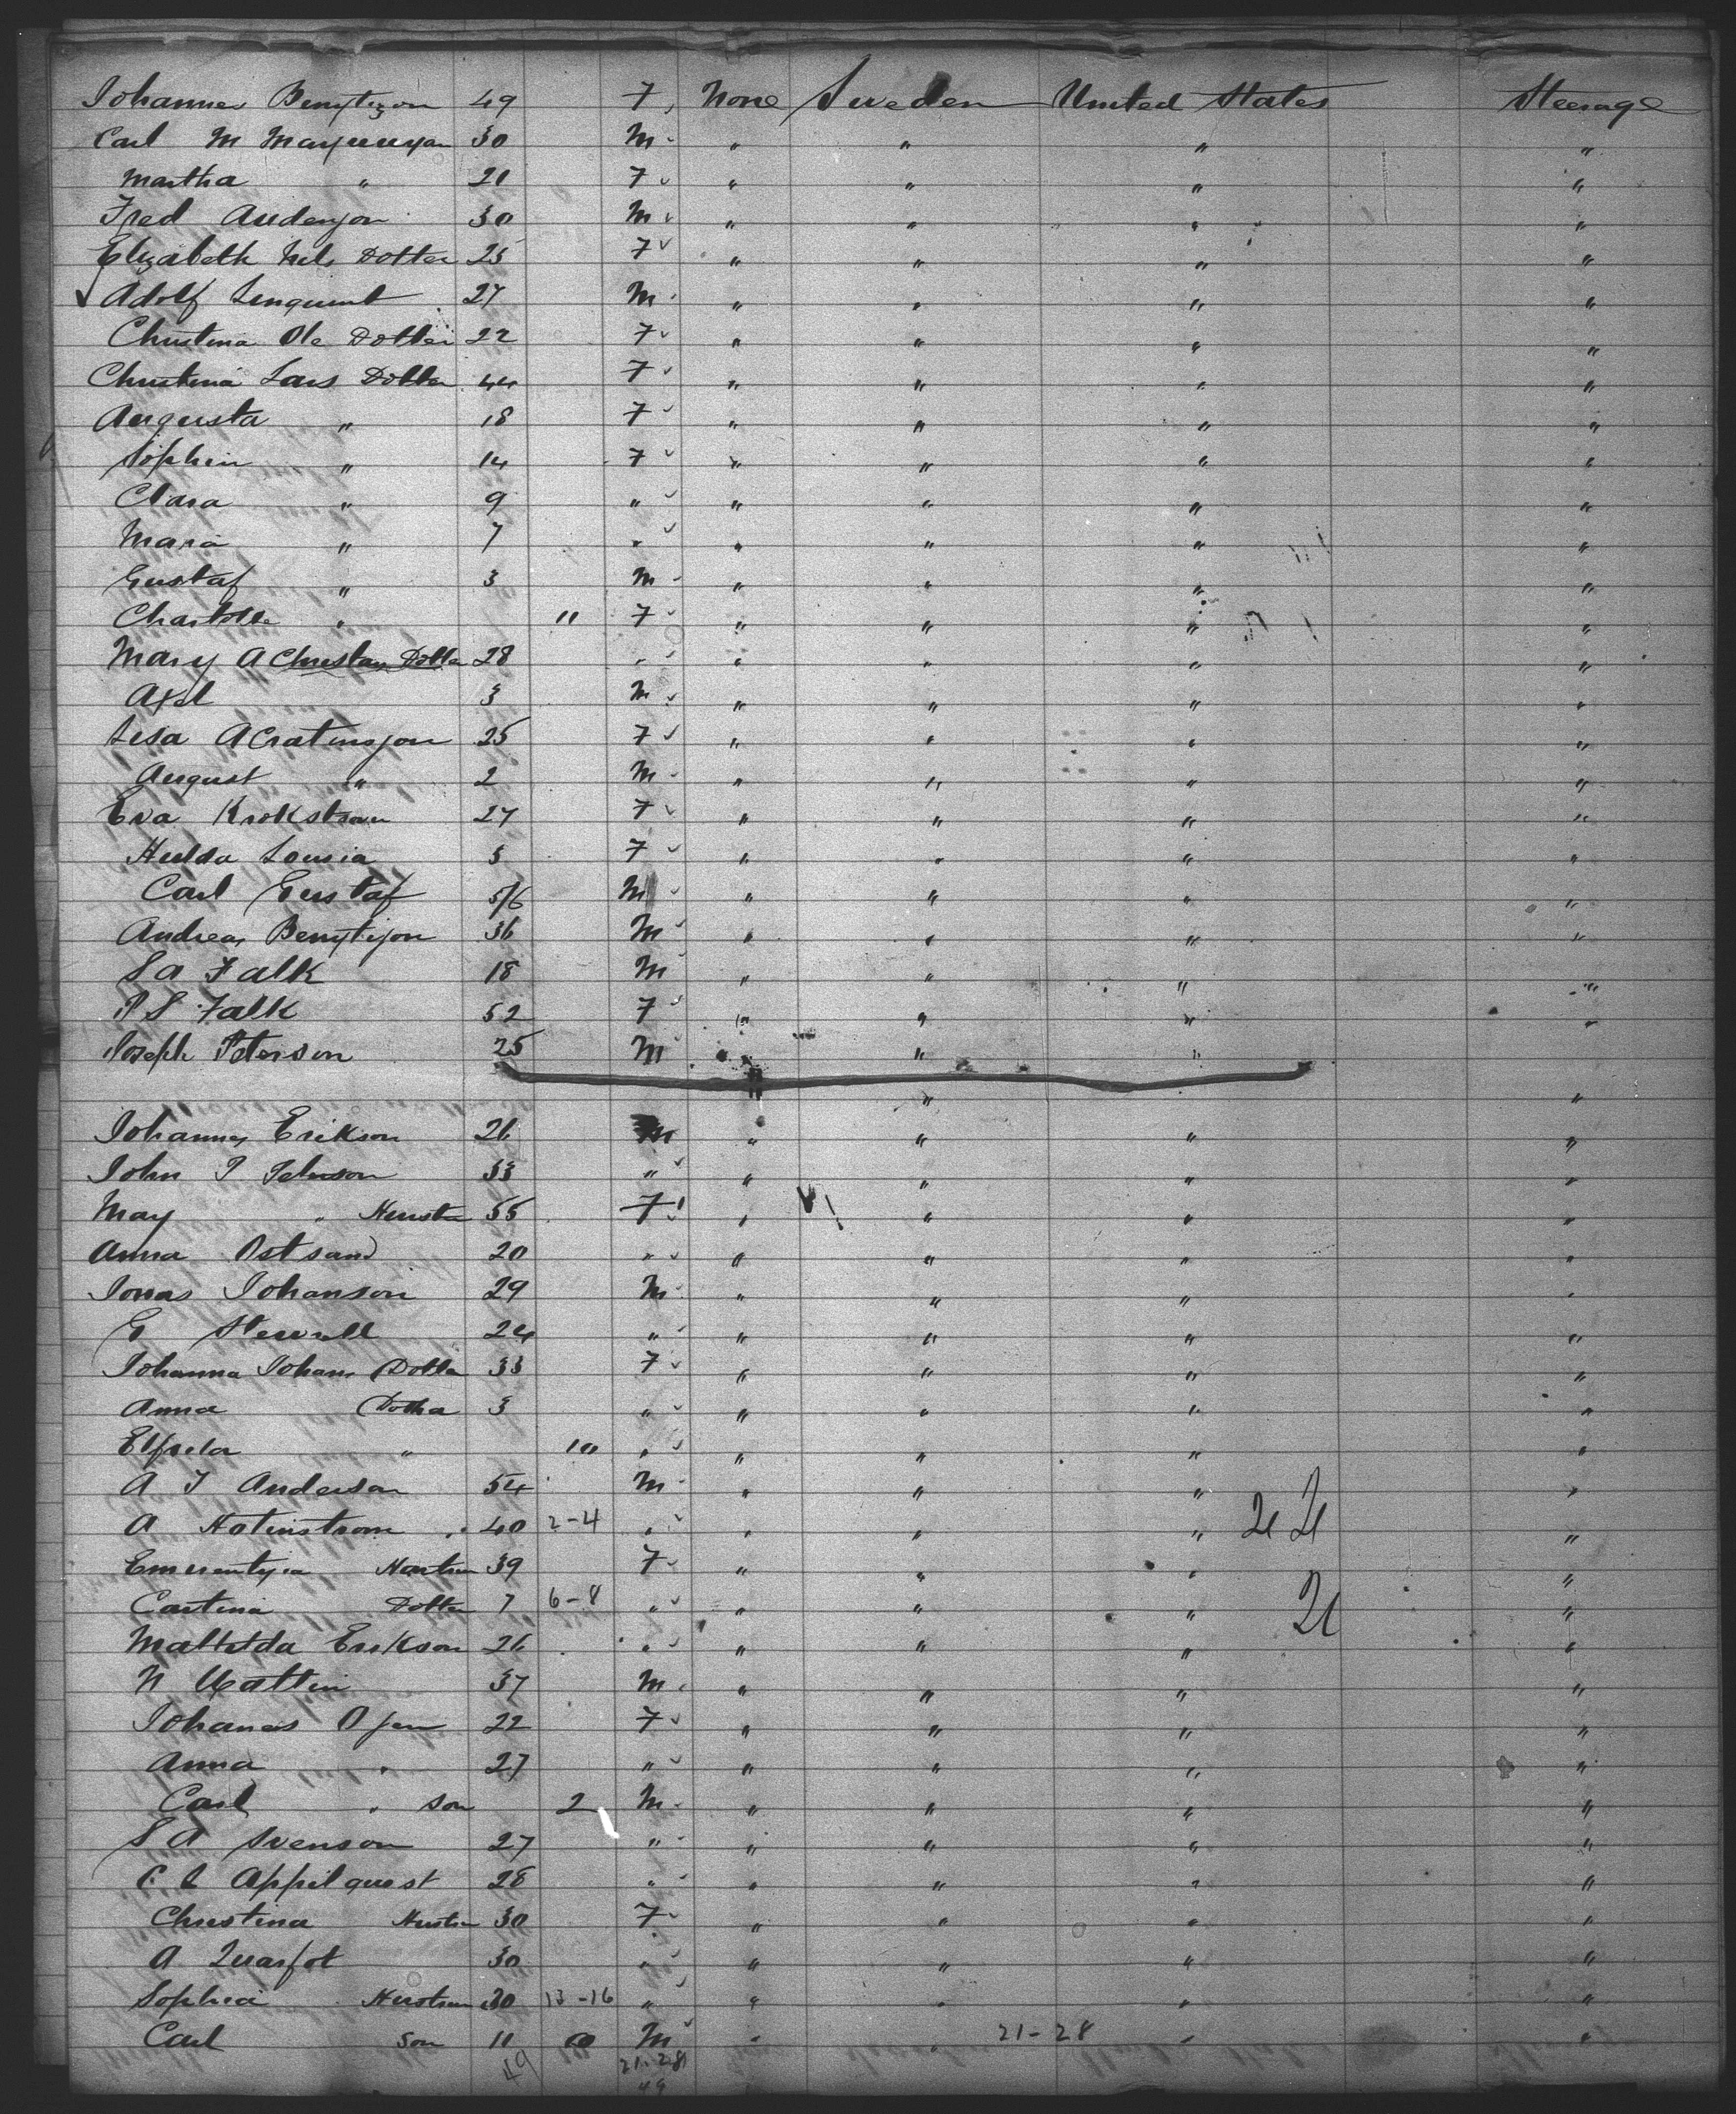 Johannes Bengtzon 49 F, None Sweden United States Steerage
Carl M 30 M " " " "
Martha " 21 F " " " "
Fred Anderson 30 M " " " "
Elizabeth Nels Dotter 25 F " " " "
Adolf Lenquint 27 M " " " "
Christina Ole Dotter 22 F " " " "
Christina Lars Dotter 44 F " " " "
Augusta " 18 F " " " "
Sophia " 14 F " " " "
Clara " 9 " " " " "
Maria " 7 " " " " "
Gustaf " 3 M " " " "
Charlotte " 11 F " " " "
Mary A Christan Dotter 28 " " " " "
Axel 3 M " " " "
Lisa 25 F " " " "
August " 2 M " " " "
Eva Krokstrom 27 F " " " "
Hulda Lousia 3 F " " " "
Carl Gustaf 5/6 M " " " "
Andreas Bengtzon 36 M " " " "
S A Falk 18 M " " " "
P S Falk 52 F " " " "
Joseph Peterson 25 M " " " "
" " "
Johannes Erikson 26 M " " " "
John P 33 " " " " "
May " Hustru 55 F " " " "
Anna Ostsand 20 " " " " "
Jonas Johanson 29 M " " " "
G 24 " " " " "
Johanna Johans Dotter 33 F " " " "
Anna Dotter 3 " " " " "
Elfrida " 10 " " " " "
A J Anderson 54 M " " " "
A Holmstrom 40 2-4 " " " " "
Hustru 39 F " " " "
Dotter 7 6-8 " " " " "
Mathilda Erikson 26 " " " " "
N 37 M " " " "
Johanes 22 F " " " "
Anna " 27 " " " " "
Carl " Son 2 M " " " "
S A Svenson 27 " " " " "
C L Appilquest 28 " " " " "
Christina Hustru 30 F " " " "
A Quarfot 30 " " " " "
Sophia Hustru 30 13-16 " " " " "
Carl Son 11 M " " 21-28 " "
49 21-28
49